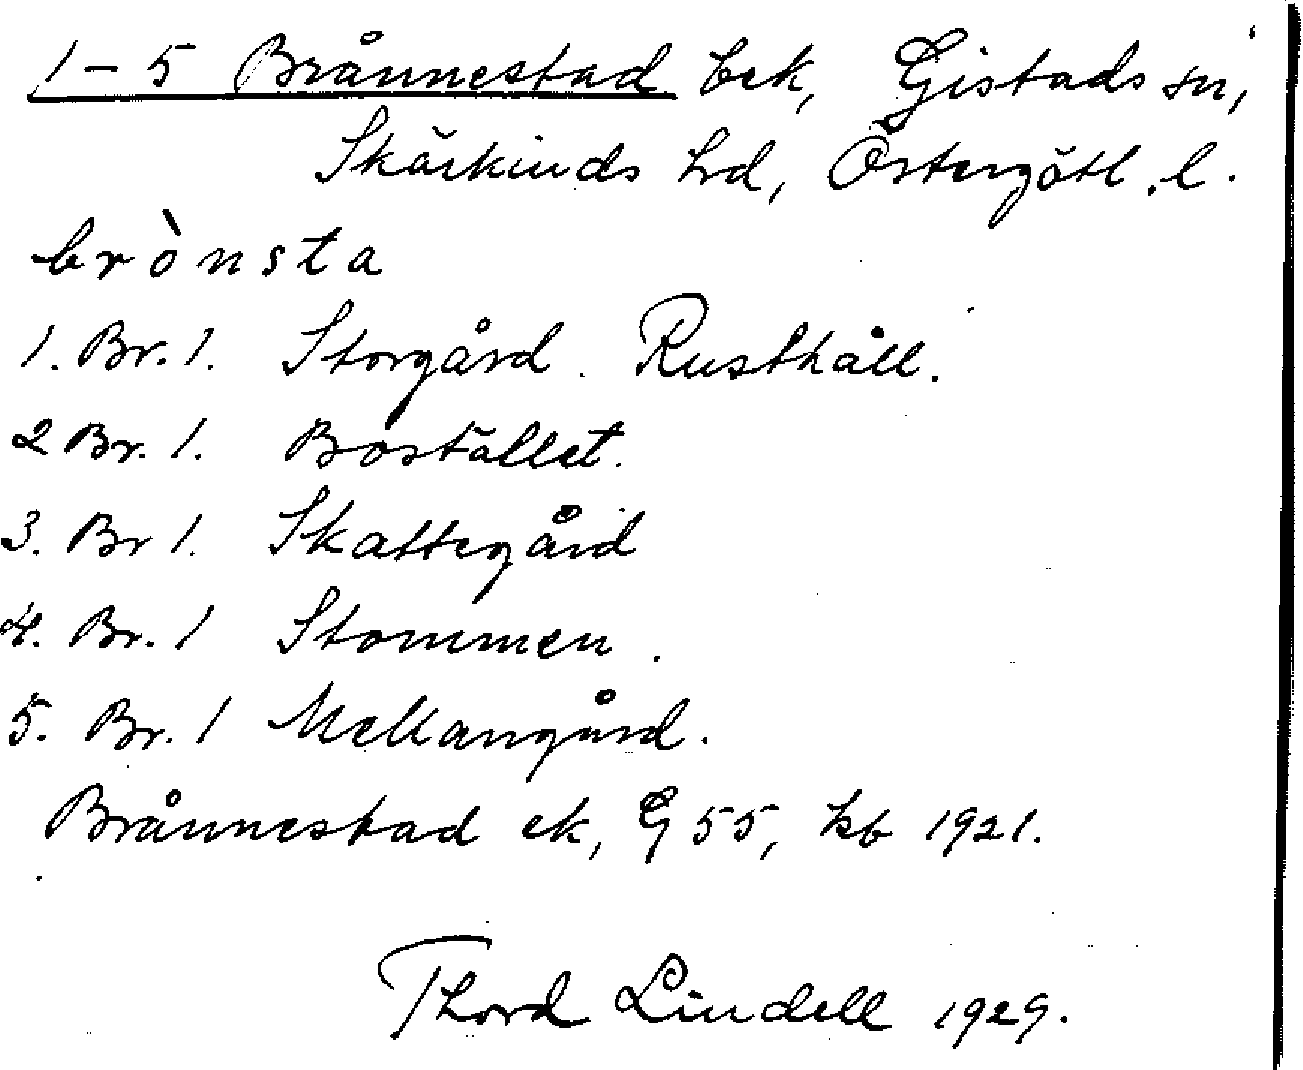 1-5 Brånnestad bek, Gistads sn,
Skärkinds hd, Östergötl. l.
brònsta
1. Br. 1. Storgård. Rusthåll.
2 Br. 1. Bostället.
3. Br 1. Skattegård
4. Br. 1 Stommen.
5. Br. 1 Mellangård.
Brånnestad ek, G 55, kb 1921.
Thord Lindell 1929.